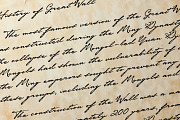 History of Great Wall
The most famous version of the Great
was constructed during the Ming Dynasty
the collapse of the Mongol-led Yuan
Mongols had shown the vulnerability of
the Ming emperors sought to prevent any
threats, including the Mongols and
The construction of the Wall was a
approximately 200 years, from